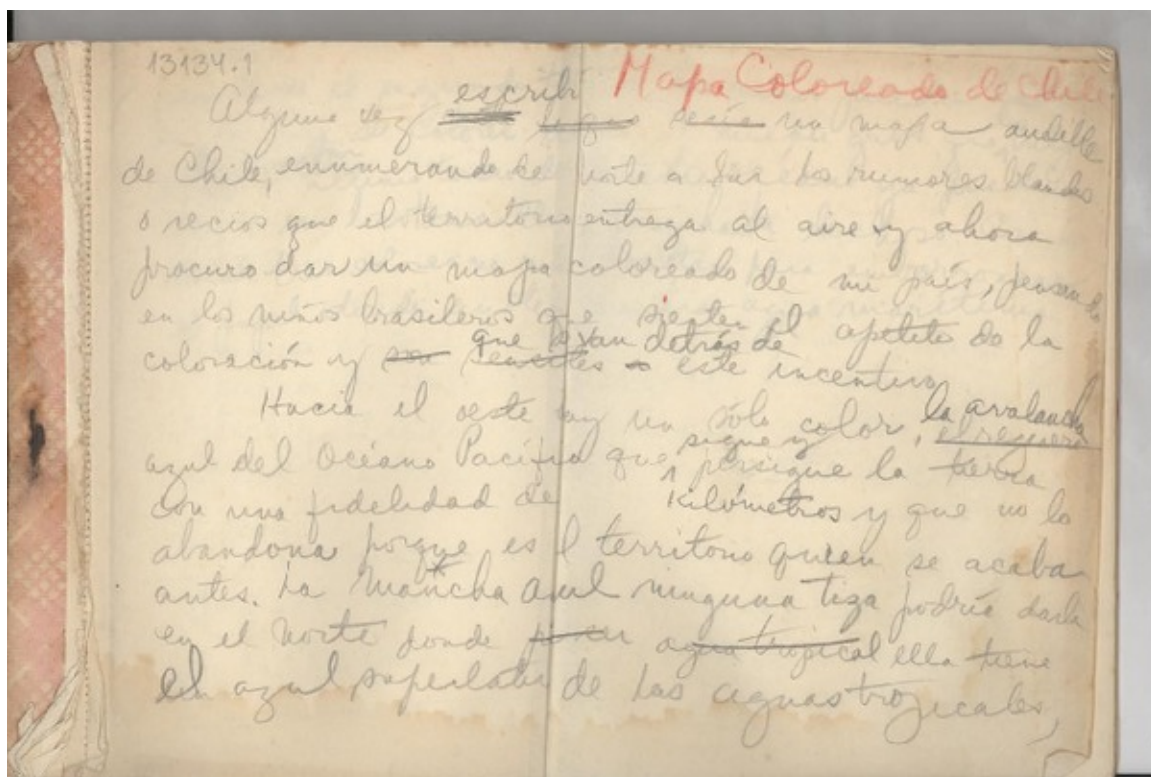 13134.1
Mapa Coloreado de Chile
Alguna vez escribí un mapa audible
de Chile, enumerando de norte a sur los rumores blandos
o recios que el territorio entrega al aire y ahora
procuro dar un mapa coloreado de mi país, pensando
en los niños brasileros que sienten el apetito de la
coloración y que se van detrás de este incentivo.
Hacia el oeste hay un sólo color, la avalancha
azul del Océano Pacífico que sigue y persigue la tierra
con una fidelidad de kilómetros y que no lo
abandona porque es el territorio quien se acaba
antes. La mancha azul ninguna tiza podría darla
en el norte donde agua tropical ella tiene
el azul superlativo de las aguas tropicales,